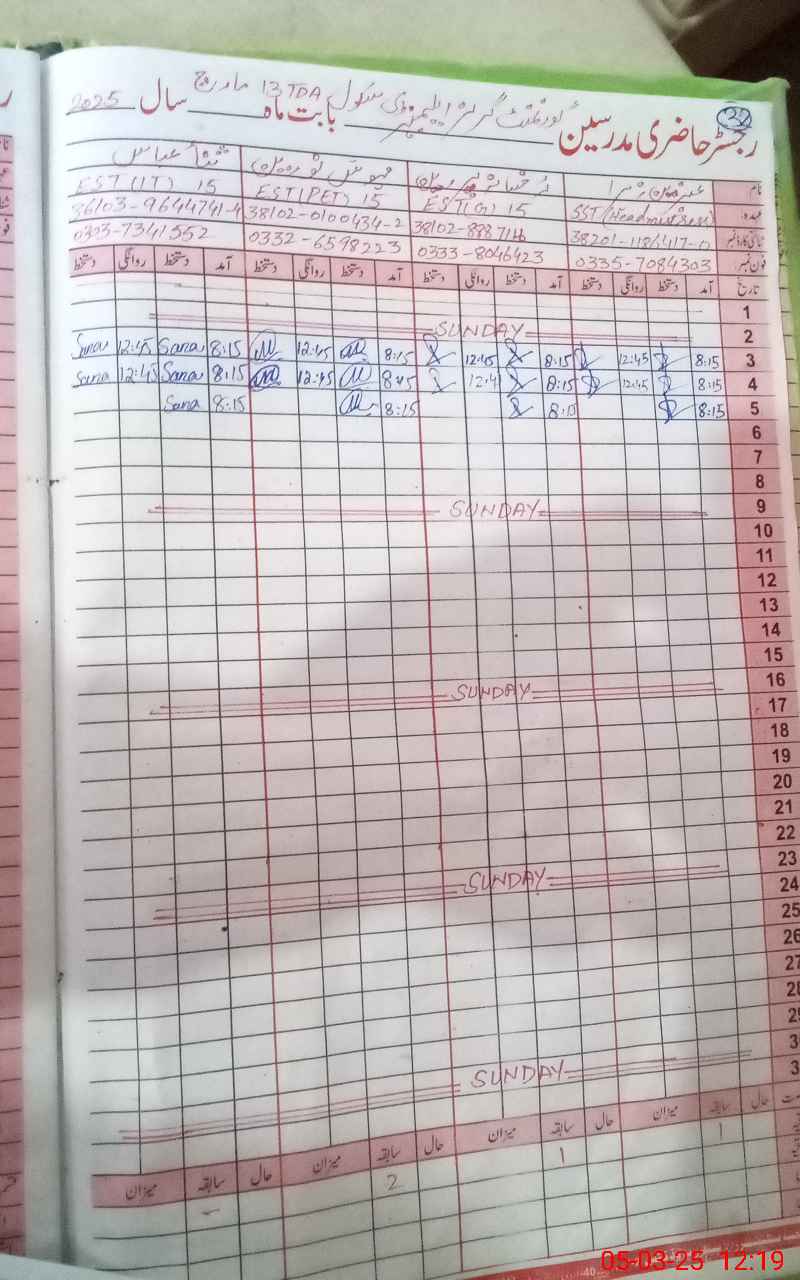 32
رجسٹر حاضری مدرسین گورنمنٹ گرلز ایلیمنٹری سکول 13 TDA بابت ماہ مارچ سال 2025
نام
ثناء عباس
عہدہ SST (Headmistress) EST(G) 15 EST(PET) 15 EST(IT) 15
شناختی کارڈ نمبر 38201-1186417-0 38102-0100434-2 36103-9644741-4
فون نمبر 0335-7084303 0333-8046423 0332-6598223 0303-7341552
تاریخ آمد دستخط روانگی دستخط آمد دستخط روانگی دستخط آمد دستخط روانگی دستخط آمد دستخط روانگی دستخط
1
2 SUNDAY
3 8:15 12:45 8:15 12:45 8:15 12:45 8:15 Sana 12:45 Sana
4 8:15 12:45 8:15 12:4 8:15 12:45 8:15 Sana 12:45 Sana
5 8:15 8:15 8:15 8:15 Sana
6
7
8
9 SUNDAY
10
11
12
13
14
15
16 SUNDAY
17
18
19
20
21
22
23 SUNDAY
24
25
26
27
28
29
3
3 SUNDAY
حال سابقہ میزان حال سابقہ میزان حال سابقہ میزان حال سابقہ میزان
1 1 2 -
-40-
05-03-25 12:19